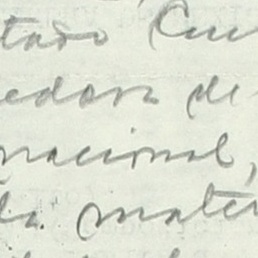 tado Cu
edora de
nacional,
la mater